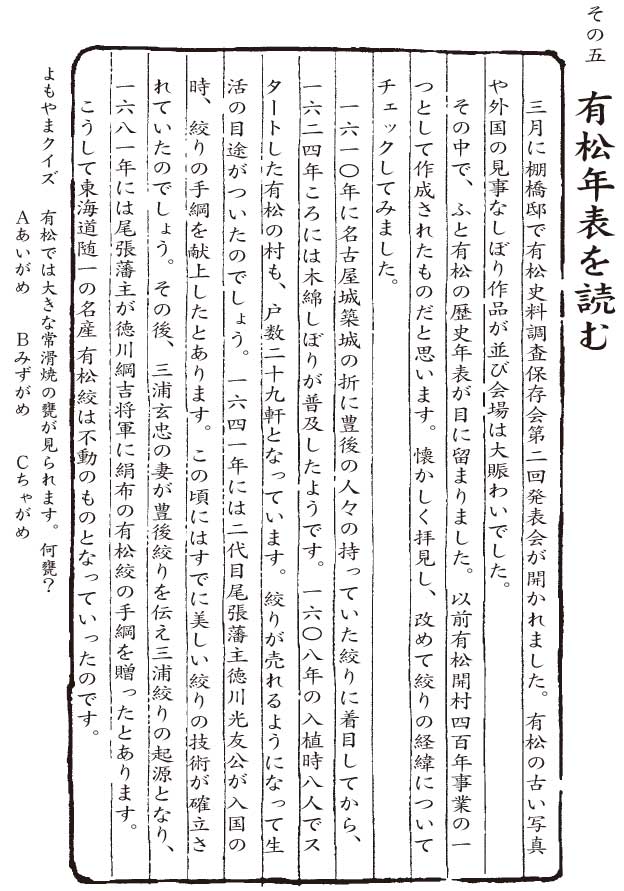 その五
有松年表を読む
三月に棚橋邸で有松史料調査保存会第二回発表会が開かれました。有松の古い写真
や外国の見事なしぼり作品が並び会場は大賑わいでした。
その中で、ふと有松の歴史年表が目に留まりました。以前有松開村四百年事業の一
つとして作成されたものだと思います。懐かしく拝見し、改めて絞りの経緯について
チェックしてみました。
一六一〇年に名古屋城築城の折に豊後の人々の持っていた絞りに着目してから、
一六二四年ころには木綿しぼりが普及したようです。一六〇八年の入植時八人でス
タートした有松の村も、戸数二十九軒となっています。絞りが売れるようになって生
活の目途がついたのでしょう。一六四一年には二代目尾張藩主徳川光友公が入国の
時、絞りの手綱を献上したとあります。この頃にはすでに美しい絞りの技術が確立さ
れていたのでしょう。その後、三浦玄忠の妻が豊後絞りを伝え三浦絞りの起源となり、
一六八一年には尾張藩主が徳川綱吉将軍に絹布の有松絞の手綱を贈ったとあります。
こうして東海道随一の名産 有松絞は不動のものとなっていったのです。
よもやまクイズ 有松では大きな常滑焼の甕が見られます。何甕?
Aあいがめ Bみずがめ Cちゃがめ